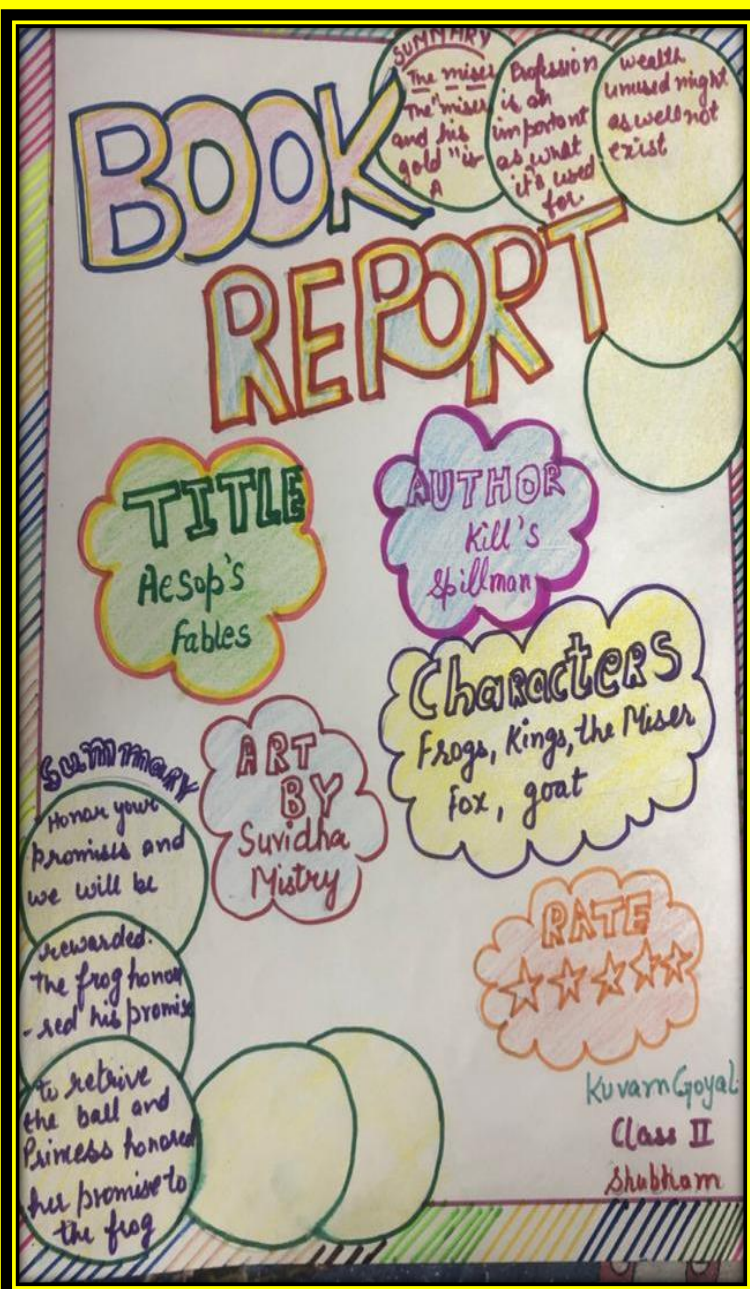 BOOK
REPORT
SUMMARY
The miser
"The miser
and his
gold "is
A
Profession
is as
important
as what
it's used
for.
wealth
unused might
as well not
exist
TITLE
Aesop's
Fables
AUTHOR
Kill's
Spillman
Characters
Frogs, Kings, the Miser
Fox, goat
ART
BY
Suvidha
Mistry
RATE
Summary
Honar your
promises and
we will be
rewarded.
the frog honou
-red his promise
to retrive
the ball and
Princess honored
her promise to
the frog
Kuvarn Goyal
Class II
Shubham